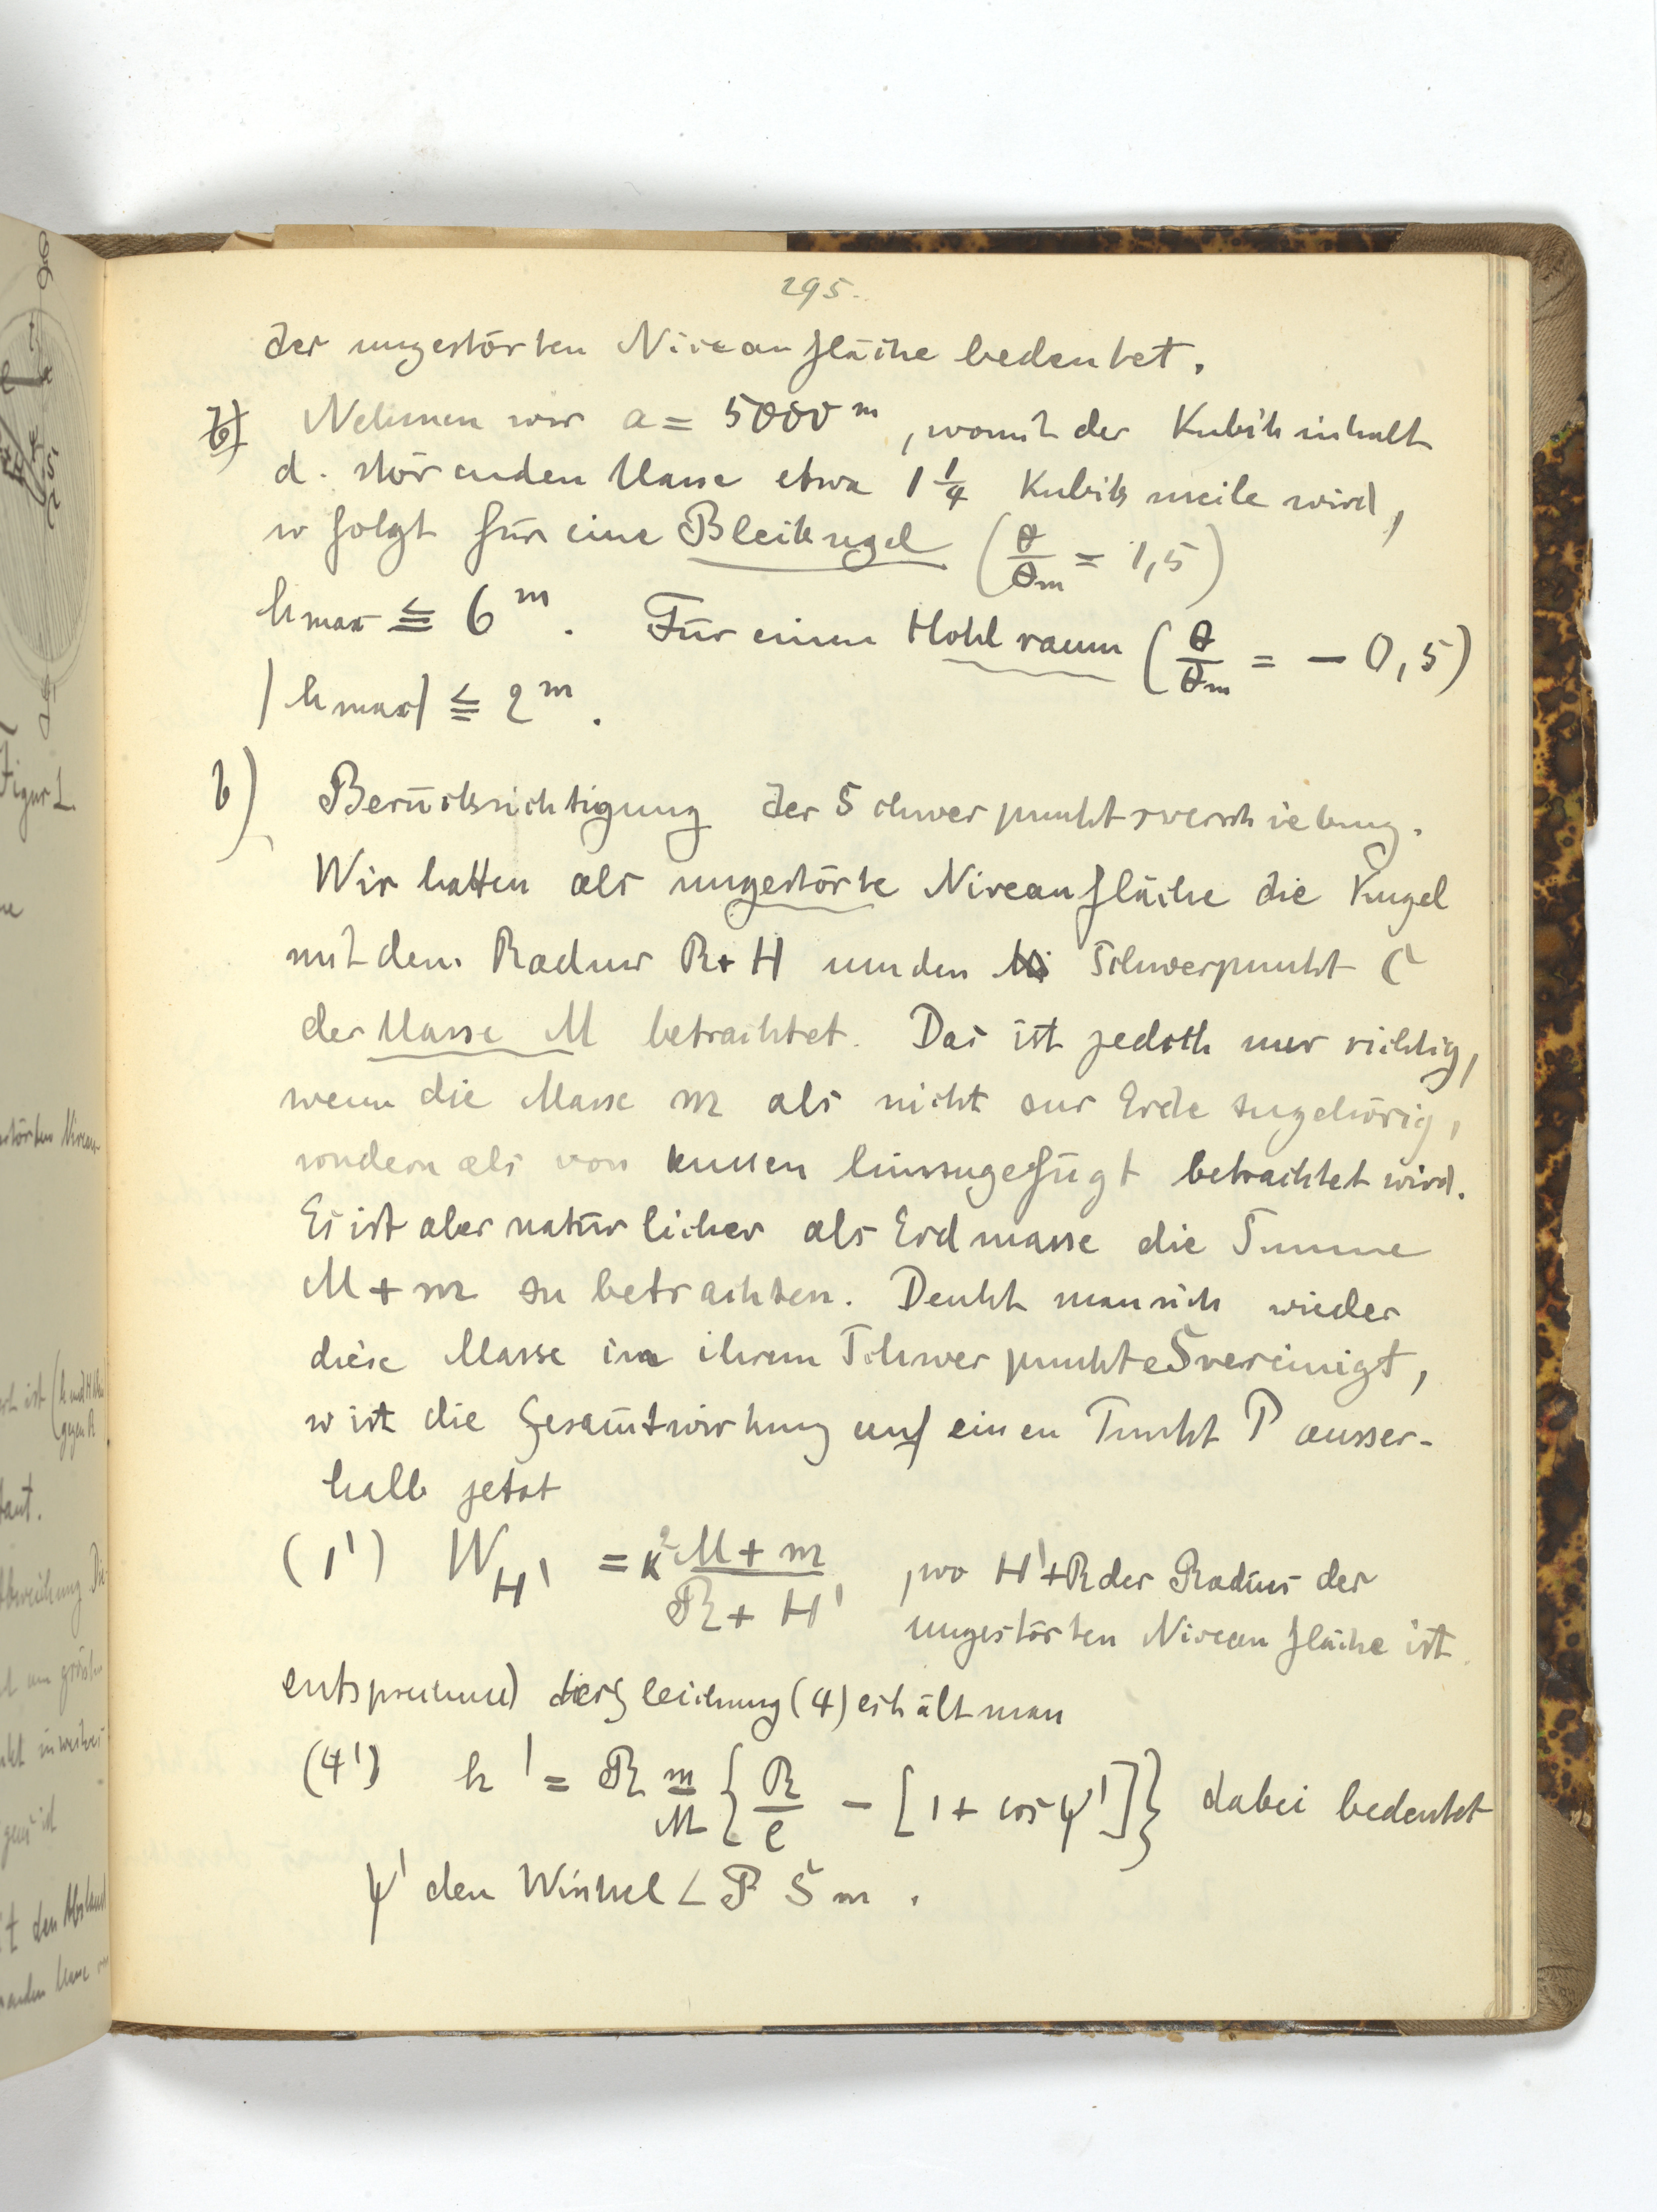 295.
der ungestörten Niveaufläche bedeutet.
b) Nehmen wir a = 5000 m, womit der Kubikinhalt
d. störenden Masse etwa 1 1/4 Kubikmeile wird,
so folgt für eine Bleikugel (θ/θm = 1,5)
hmax ≦ 6 m. Für einen Hohlraum (θ/θm = − 0,5)
|hmax| ≦ 2 m.
b) Berücksichtigung der Schwerpunktsverschiebung.
Wir hatten als ungestörte Niveaufläche die Kugel
mit dem Radius R + H um den Schwerpunkt C
der Masse M betrachtet. Das ist jedoch nur richtig,
wenn die Masse m als nicht zur Erde zugehörig,
sondern als von aussen hinzugefügt betrachtet wird.
Es ist aber natürlicher als Erdmasse die Summe
M + m zu betrachten. Denkt man sich wieder
diese Masse in ihrem Schwerpunkte S vereinigt,
so ist die Gesamtwirkung auf einen Punkt P ausser-
halb jetzt
(1') W_H' = κ² (M + m)/(R + H') , wo H' + R der Radius der
ungestörten Niveaufläche ist.
entsprechend der Gleichung (4) erhält man
(4') h' = R m/M {R/e − [1 + cos ψ']} dabei bedeutet
ψ' den Winkel ∠ P S m .
Figur 1.